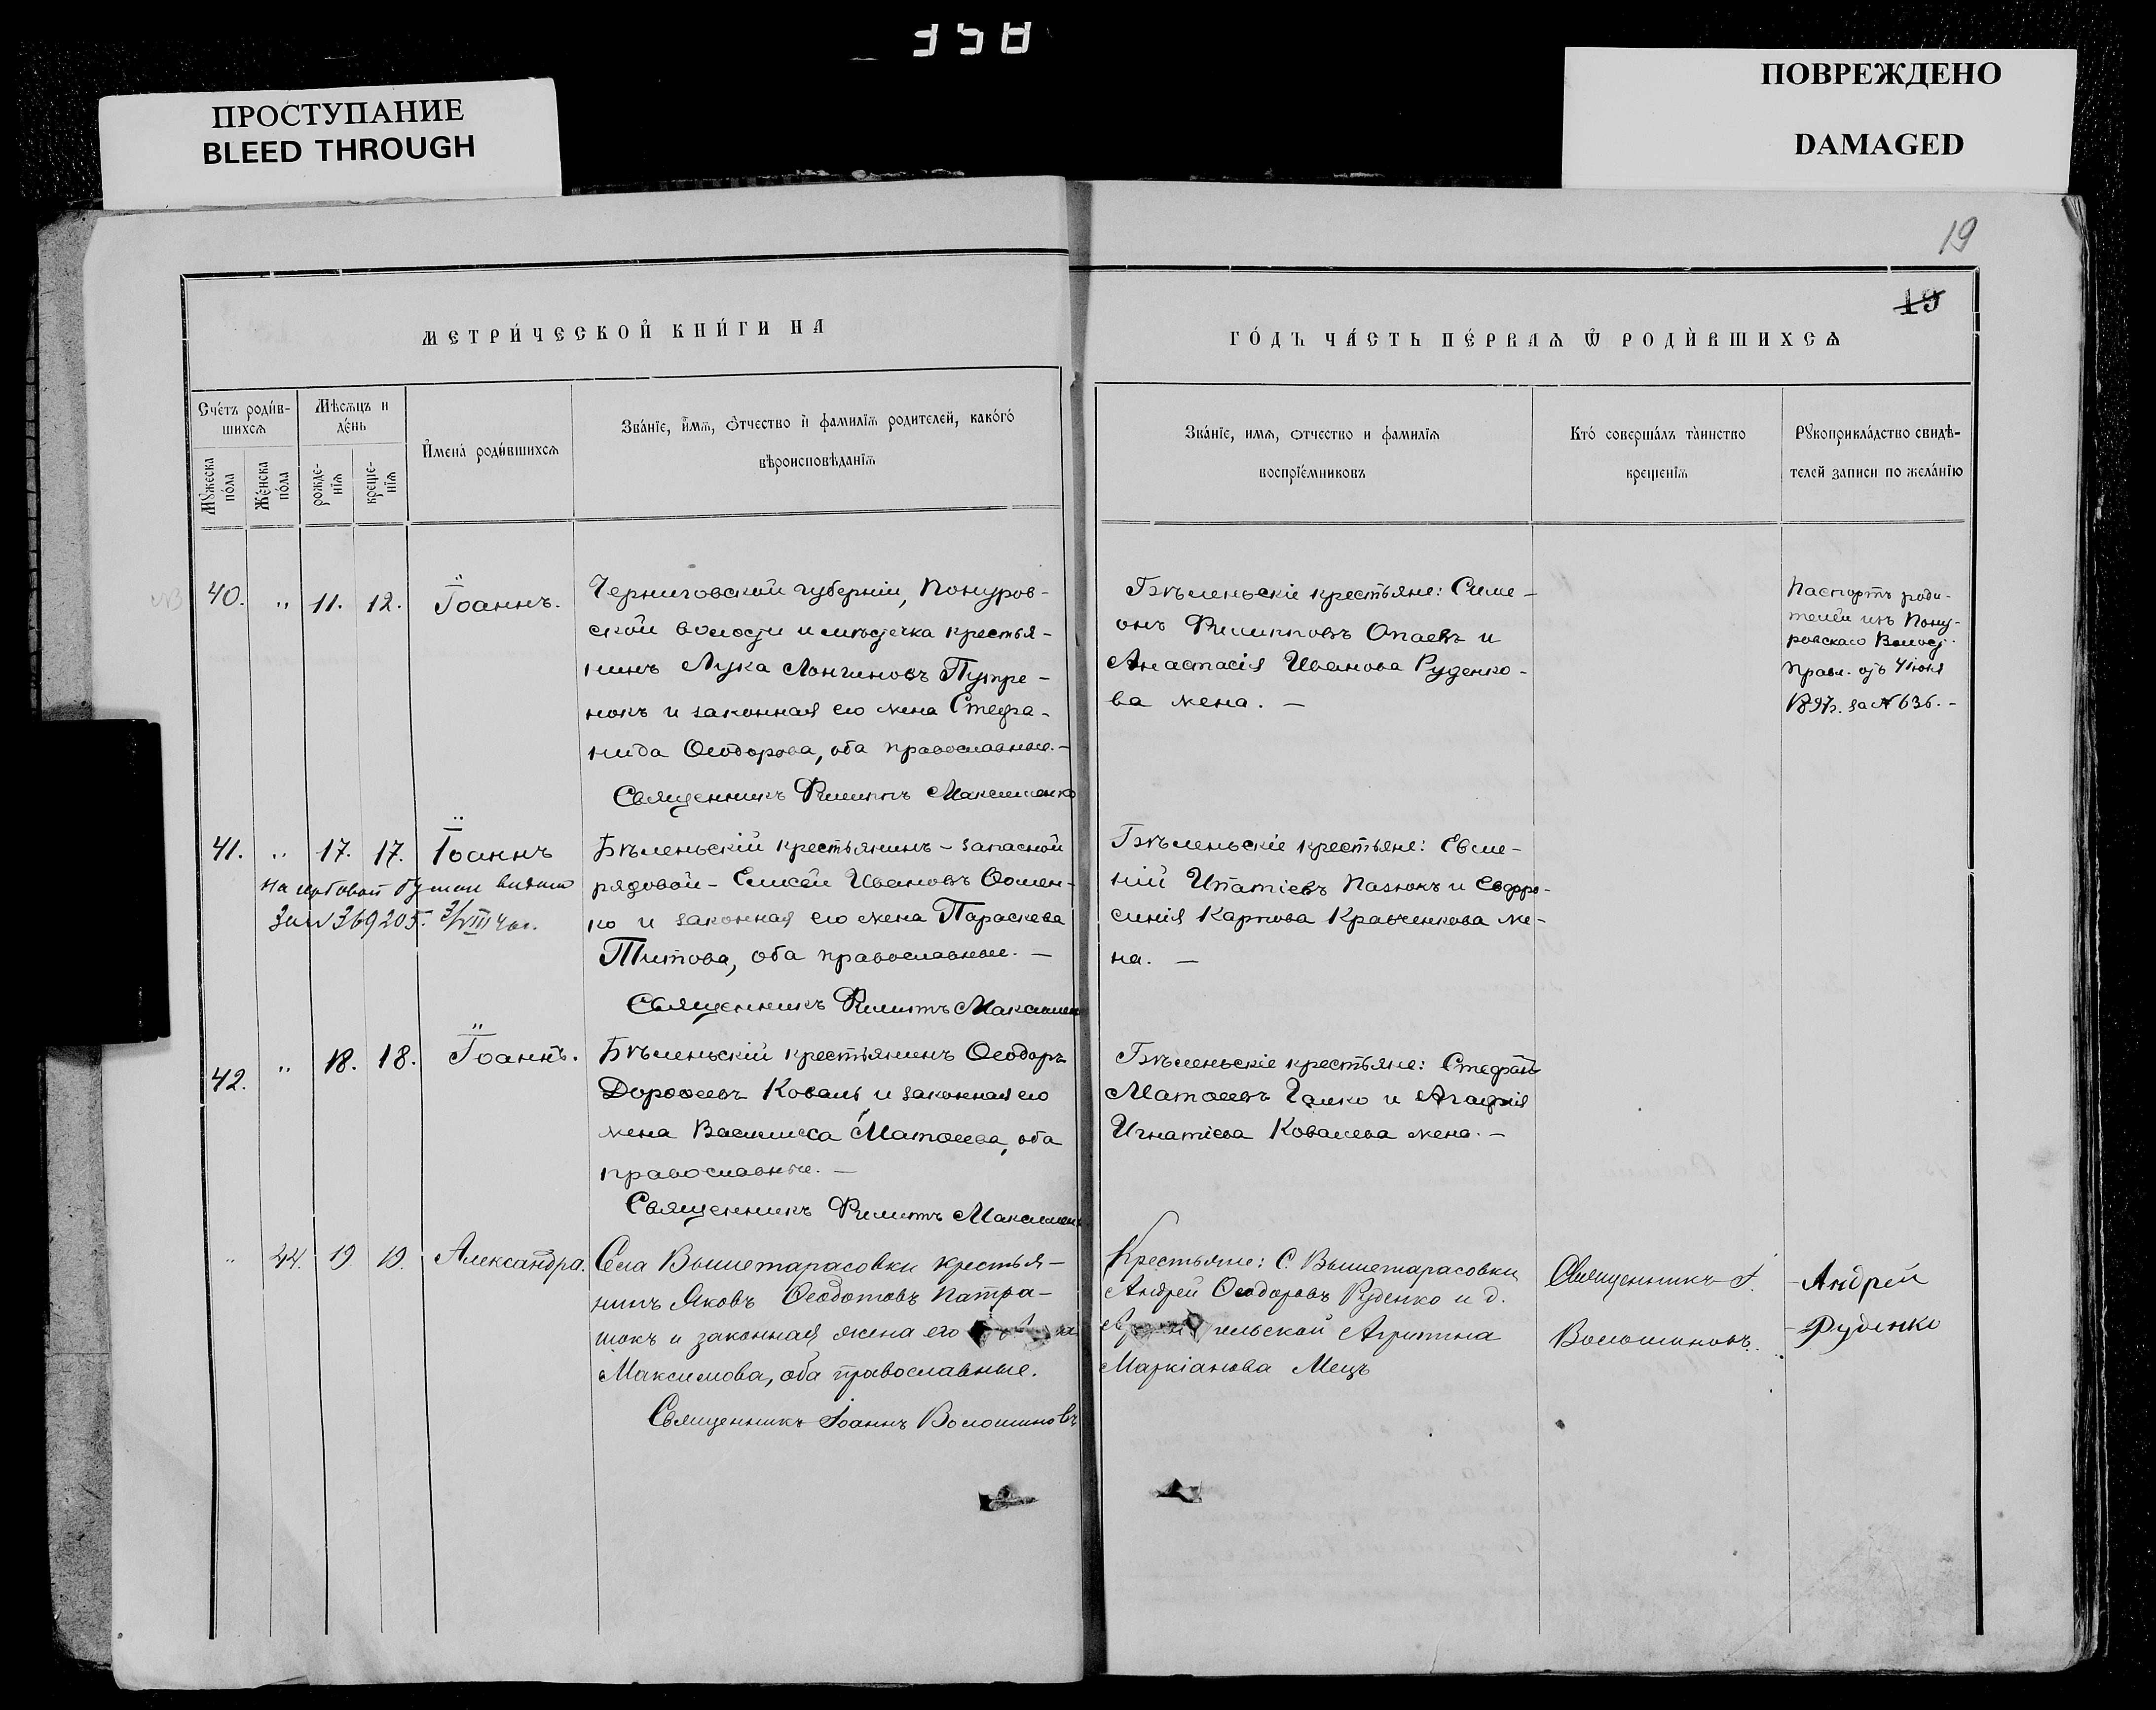 ПРОСТУПАНИЕ
BLEED THROUGH
ПОВРЕЖДЕНО
DAMAGED
19
19
МЕТРИ́ЧЕСКОЙ КНИ́ГИ НА
ГО́ДЪ ЧА́СТЬ ПЕ́РВАѦ Ѿ РОДИ́ВШИХСѦ
Сче́тъ роди́в-
шихсѧ
Мѣсѧцъ и
де́нь
Мꙋжеска
по́ла
Же́нска
по́ла
рожде-
нїѧ
креще-
нїѧ
И҆мена̀ роди́вшихсѧ
Зва́нїе, и҆́мѧ, ѻ҆́тчество и҆ фамилїѧ родителей, како́го
вѣроисповѣданїѧ
Зва́нїе, имѧ, ѻтчество и фамилїѧ
воспрїе́мниковъ
Кто́ соверша́лъ та́инство
крещенїѧ
Рꙋкоприкла́дство свидѣ-
телей записи по жела́нїю
40. " 11. 12. Іоаннъ.
Черниговской губерніи, Понуров-
ской волости и мѣстечка крестья-
нинъ Лука Лонгиновъ Путре-
нокъ и законная его жена Стефа-
нида Ѳеодорова, оба православные.-
Священникъ Филиппъ Максименко
Бѣленьскіе крестьяне: Симе-
онъ Филипповъ Опаевъ и
Анастасія Иванова Руденко-
ва жена. -
Паспортъ роди-
телей изъ Пону-
ровскаго Волост.
Правл. отъ 4 іюня
1897г. за № 636. -
41. " 17. 17. Іоаннъ
за № 369205.
Бѣленьскій крестьянинъ - запасной
рядовой - Елисей Ивановъ Ѳомен-
ко и законная его жена Параскева
Титова, оба православные. -
Священникъ Филиппъ Максимен
Бѣленьскіе крестьяне: Евме-
ній Ипатіевъ Пазюкъ и Евфро-
синія Карпова Кравченкова же-
на. -
42. " 18. 18. Іоаннъ.
Бѣленьскій крестьянинъ Ѳеодоръ
Дороѳеевъ Коваль и законная его
жена Василисса Матѳеева, оба
православные. -
Священникъ Филиппъ Максимен
Бѣленьскіе крестьяне: Стефанъ
Матѳеевъ Галко и Агафія
Игнатіева Ковалева жена. -
" 44. 19. 19. Александра.
Села Вышетарасовки крестья-
нинъ Яковъ Ѳеодотовъ Патра-
шокъ и законная жена его
Максимова, оба православные.
Священникъ Іоаннъ Волошиновъ
Крестьяне: С. Вышетарасовки
Андрей Ѳеодоровъ Руденко и д.
гельской Агрипина
Маркіанова Мецъ
Священникъ І.
Волошиновъ.
Андрей
Руденко